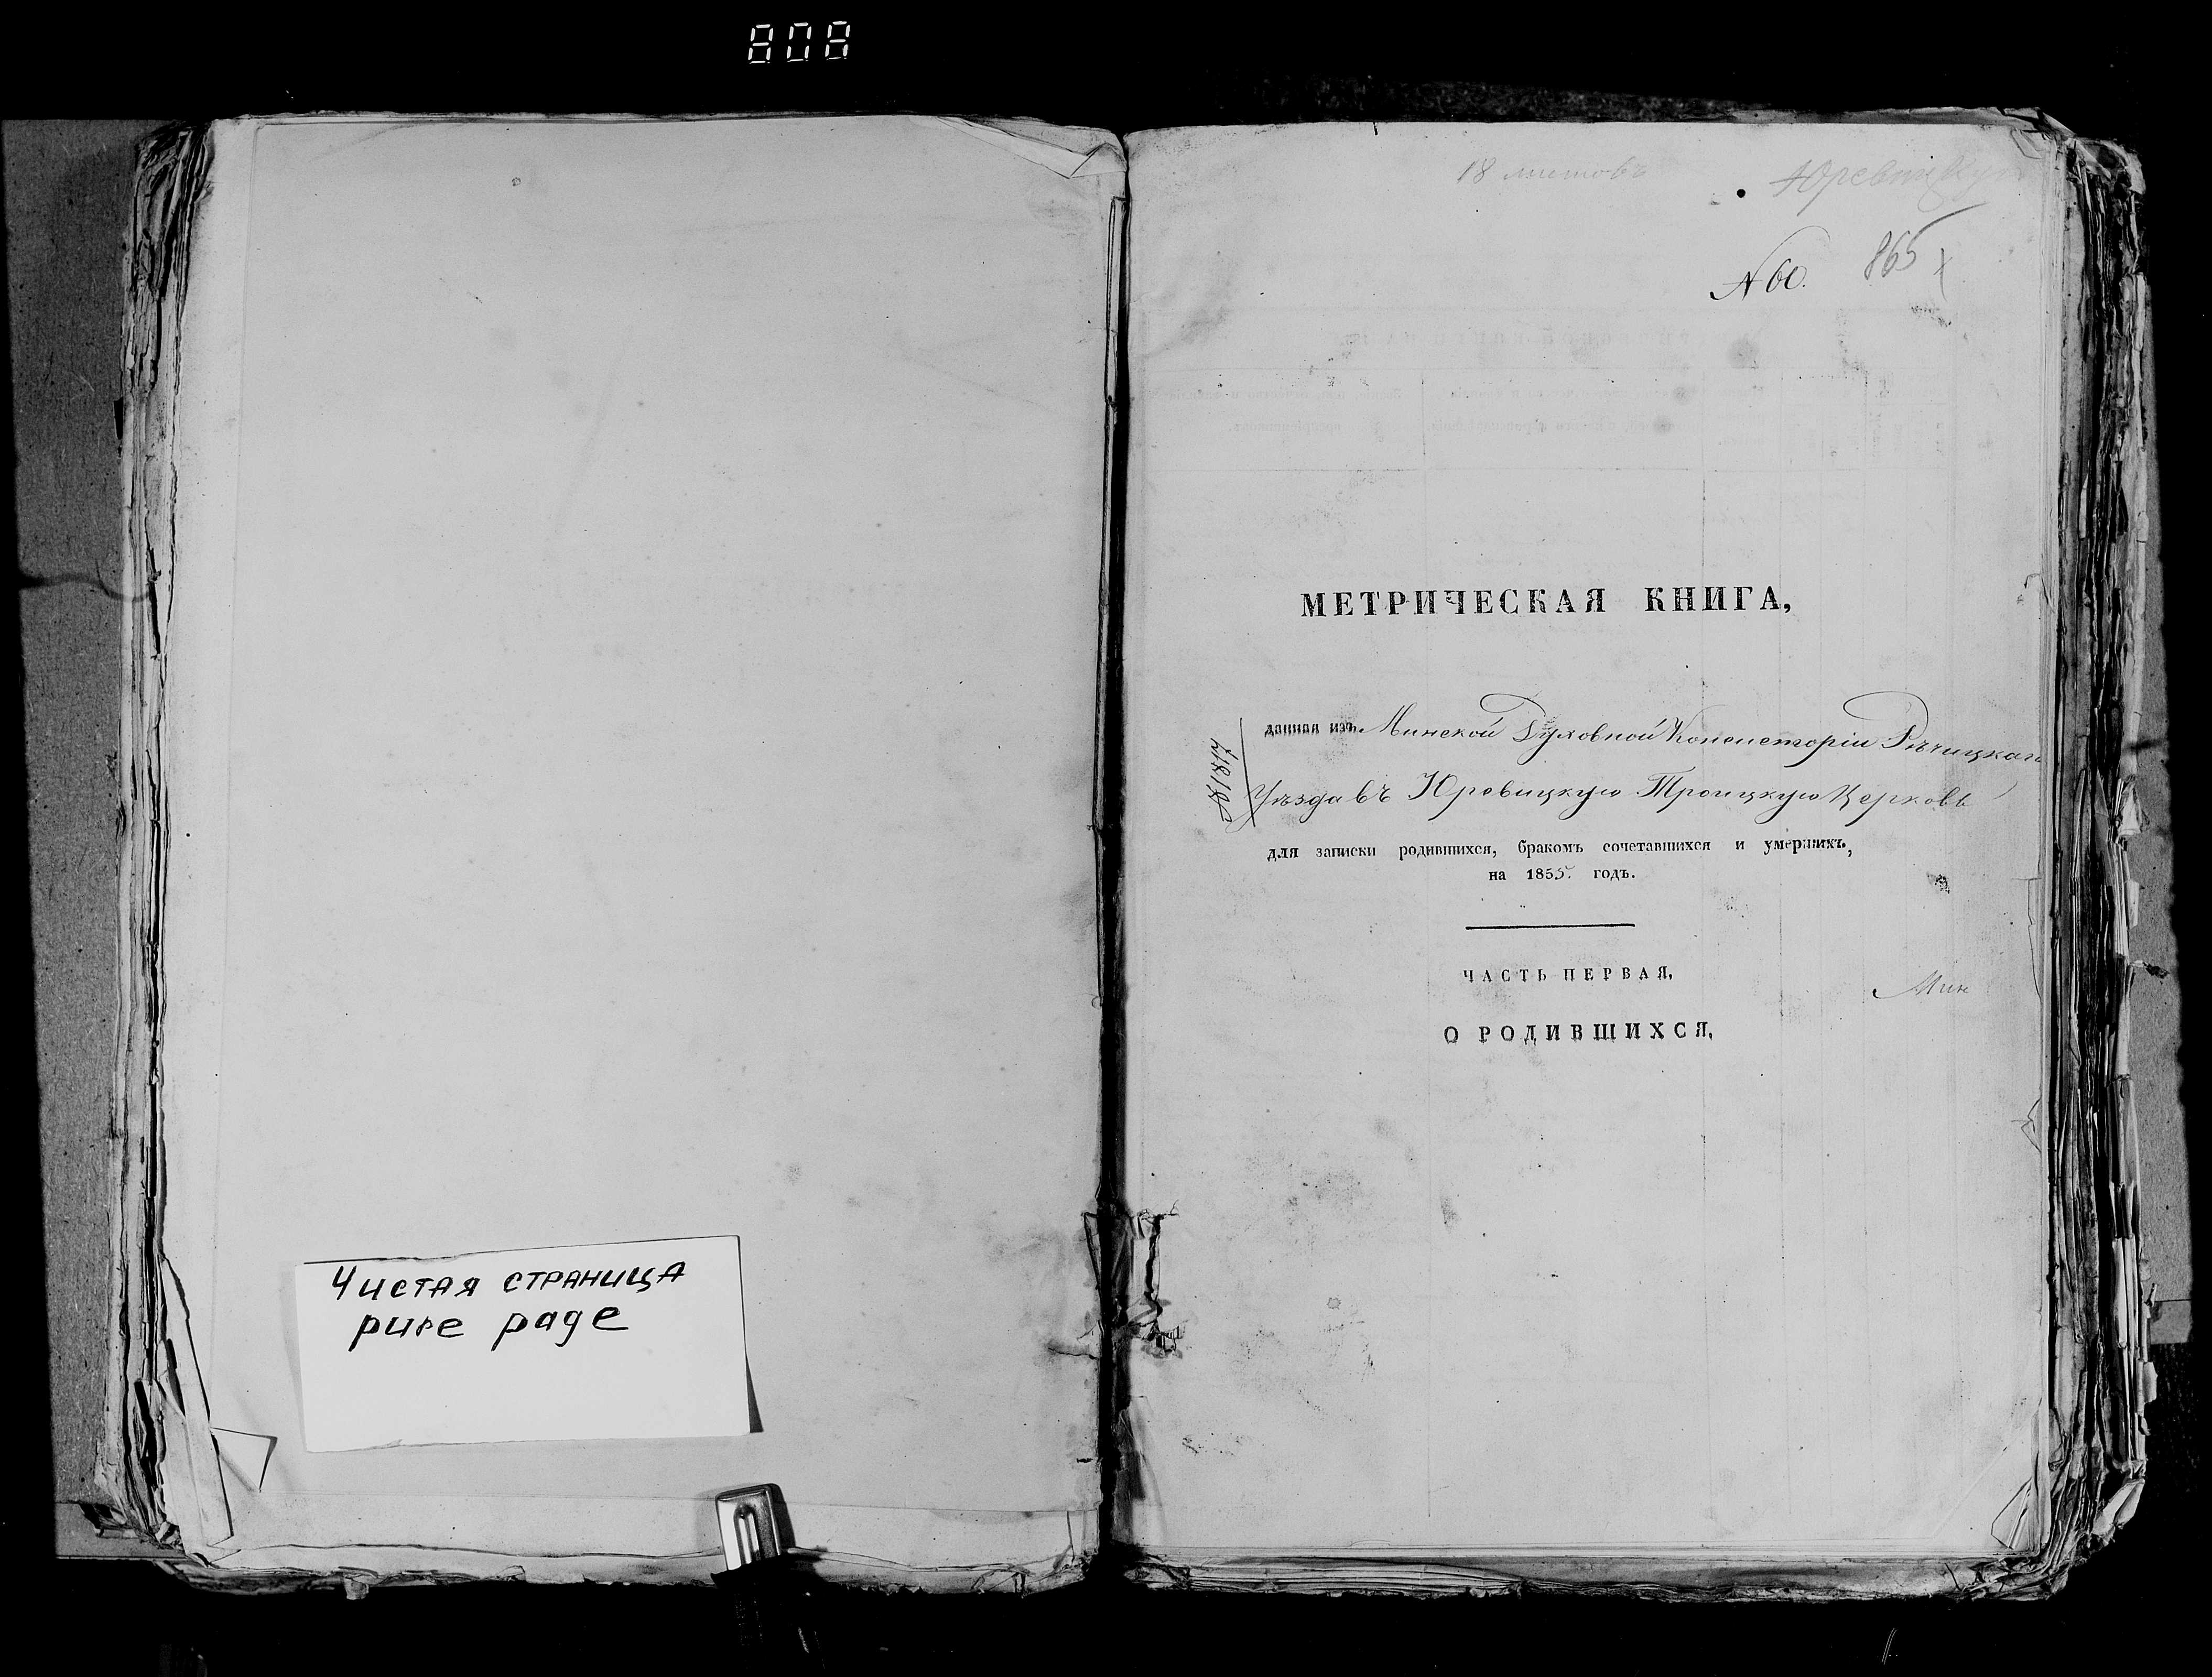 808
Чистая страница
pure page
18 листовъ
№ 60.
865
МЕТРИЧЕСКАЯ КНИГА,
данная изъ Минской Духовной Консисторіи Рѣчицкаго
Уѣзда въ Юревицкую Троицкую Церковь
для записки родившихся, бракомъ сочетавшихся и умершихъ,
на 1855. годъ.
ЧАСТЬ ПЕРВАЯ,
Мин
О РОДИВШИХСЯ,